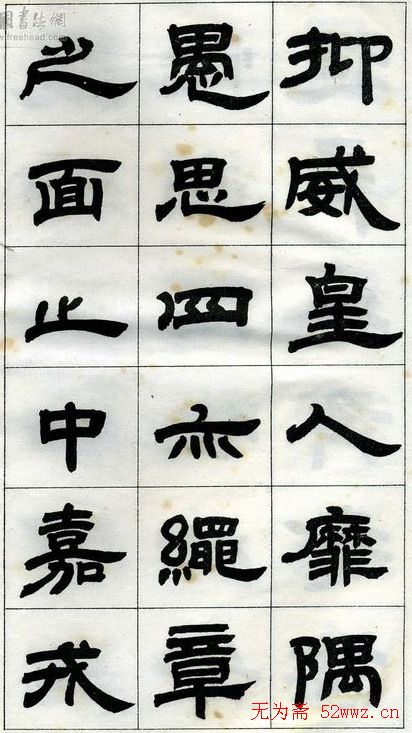 抑威皇人靡隅
愚思四亦繩章
之面止中嘉戎
国書法網
www.freehead.com
无为斋 52wwz.cn